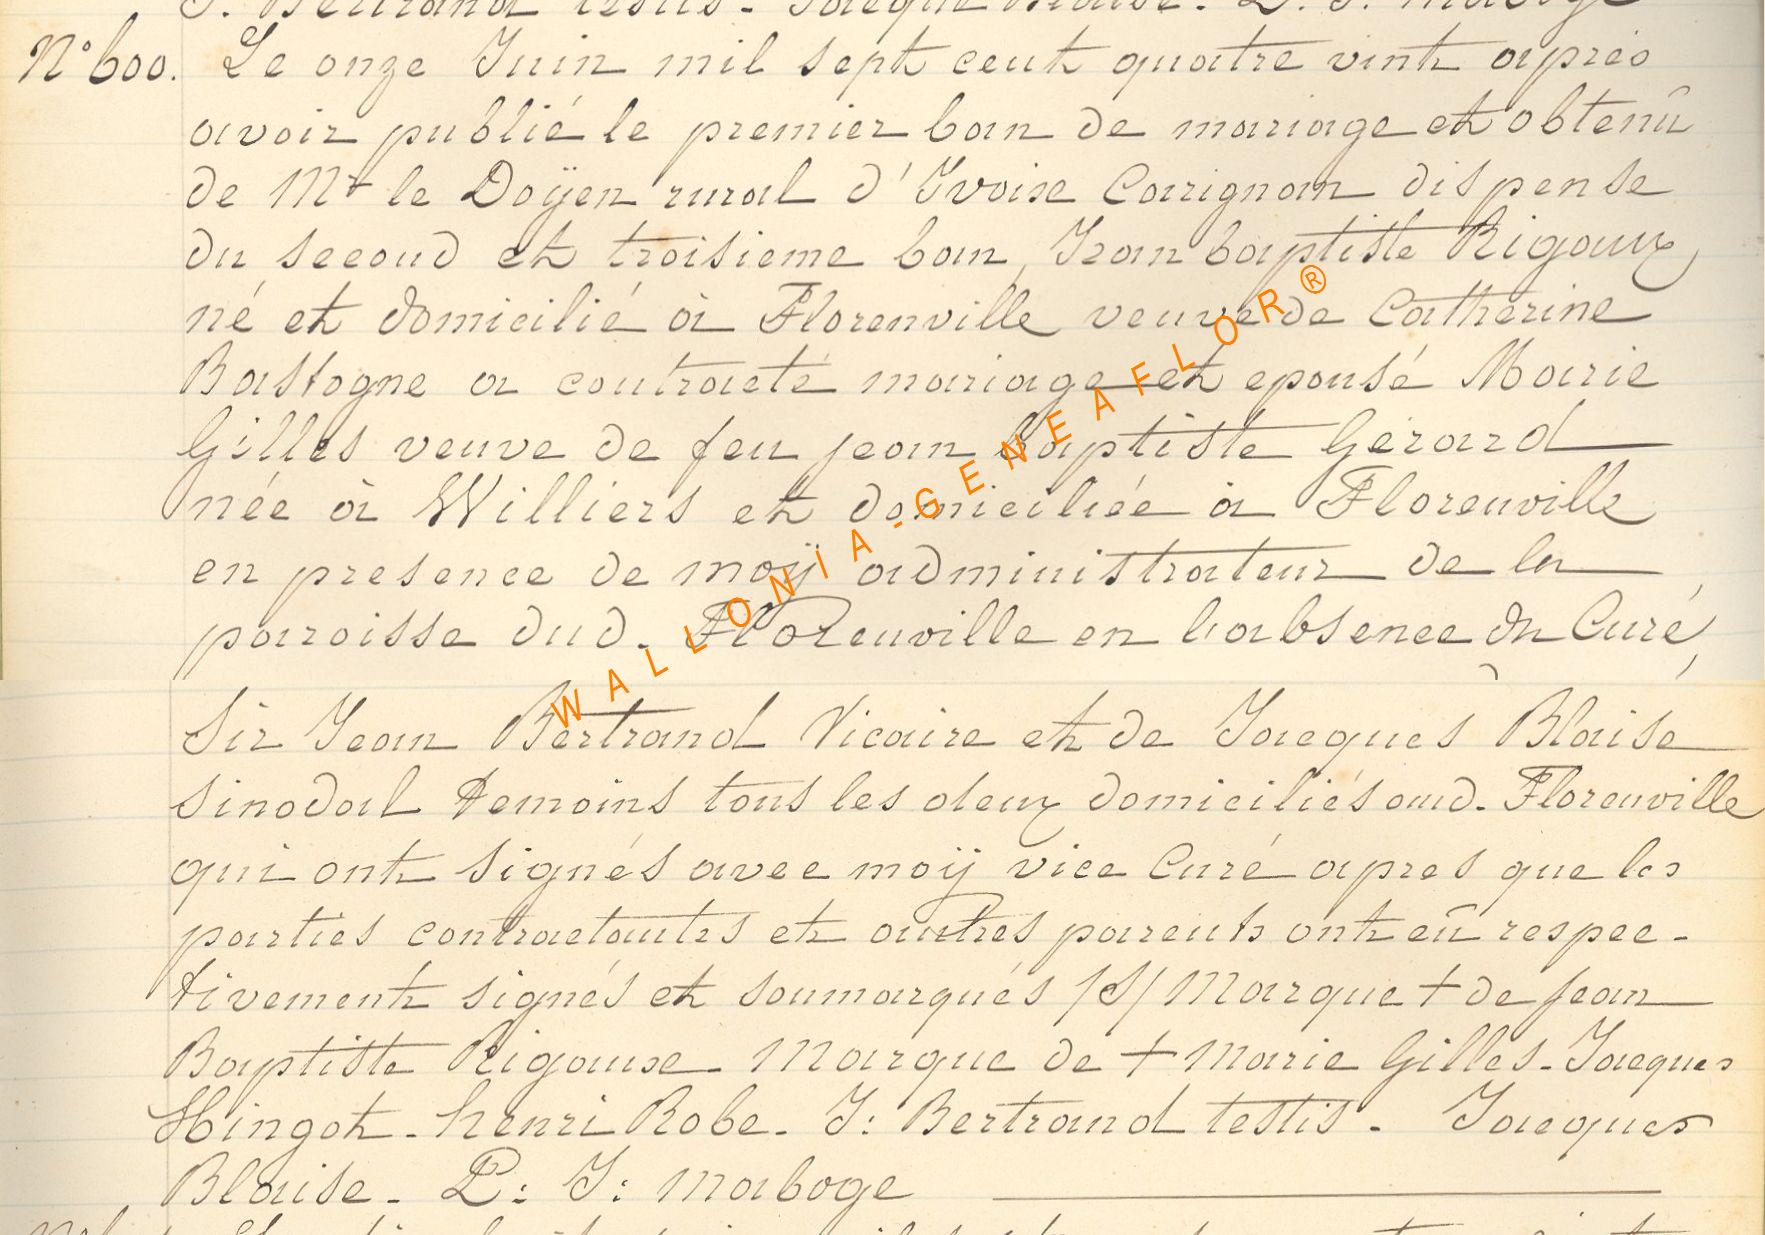 J. Bertrand testis - Jacque Blaise - L. J. Maboge
N° 600. Le onze Juin mil sept cent quatre vint après
avoir publié le premier ban de mariage et obtenû
de Mr le Doÿen rural d'Ivoix Carignan dispense
du second et troisieme ban, Jean baptiste Rigaux,
né et domicilié à Florenville veuve de Catherine
Bastogne a contracté mariage et epousé Marie
Gilles veuve de feu jean baptiste Gérard
née à Williers et domiciliée à Florenville
en presence de moÿ administrateur de la
paroisse dud. Florenville en l'absence du Curé,
Sir Jean Bertrand Vicaire et de Jacques Blaise
sinodal temoins tous les deux domiciliés aud. Florenville
qui ont signés avec moÿ vice Curé apres que les
parties contractantes et autres parents ont eû respec-
tivement signés et soumarqués /S/ Marque + de jean
Baptiste Rigaux - Marque de + Marie Gilles - Jacques
Hingot - henri Robe - J: Bertrand testis - Jacques
Blaise - L: J: maboge
WALLONIA-GENEAFLOR®